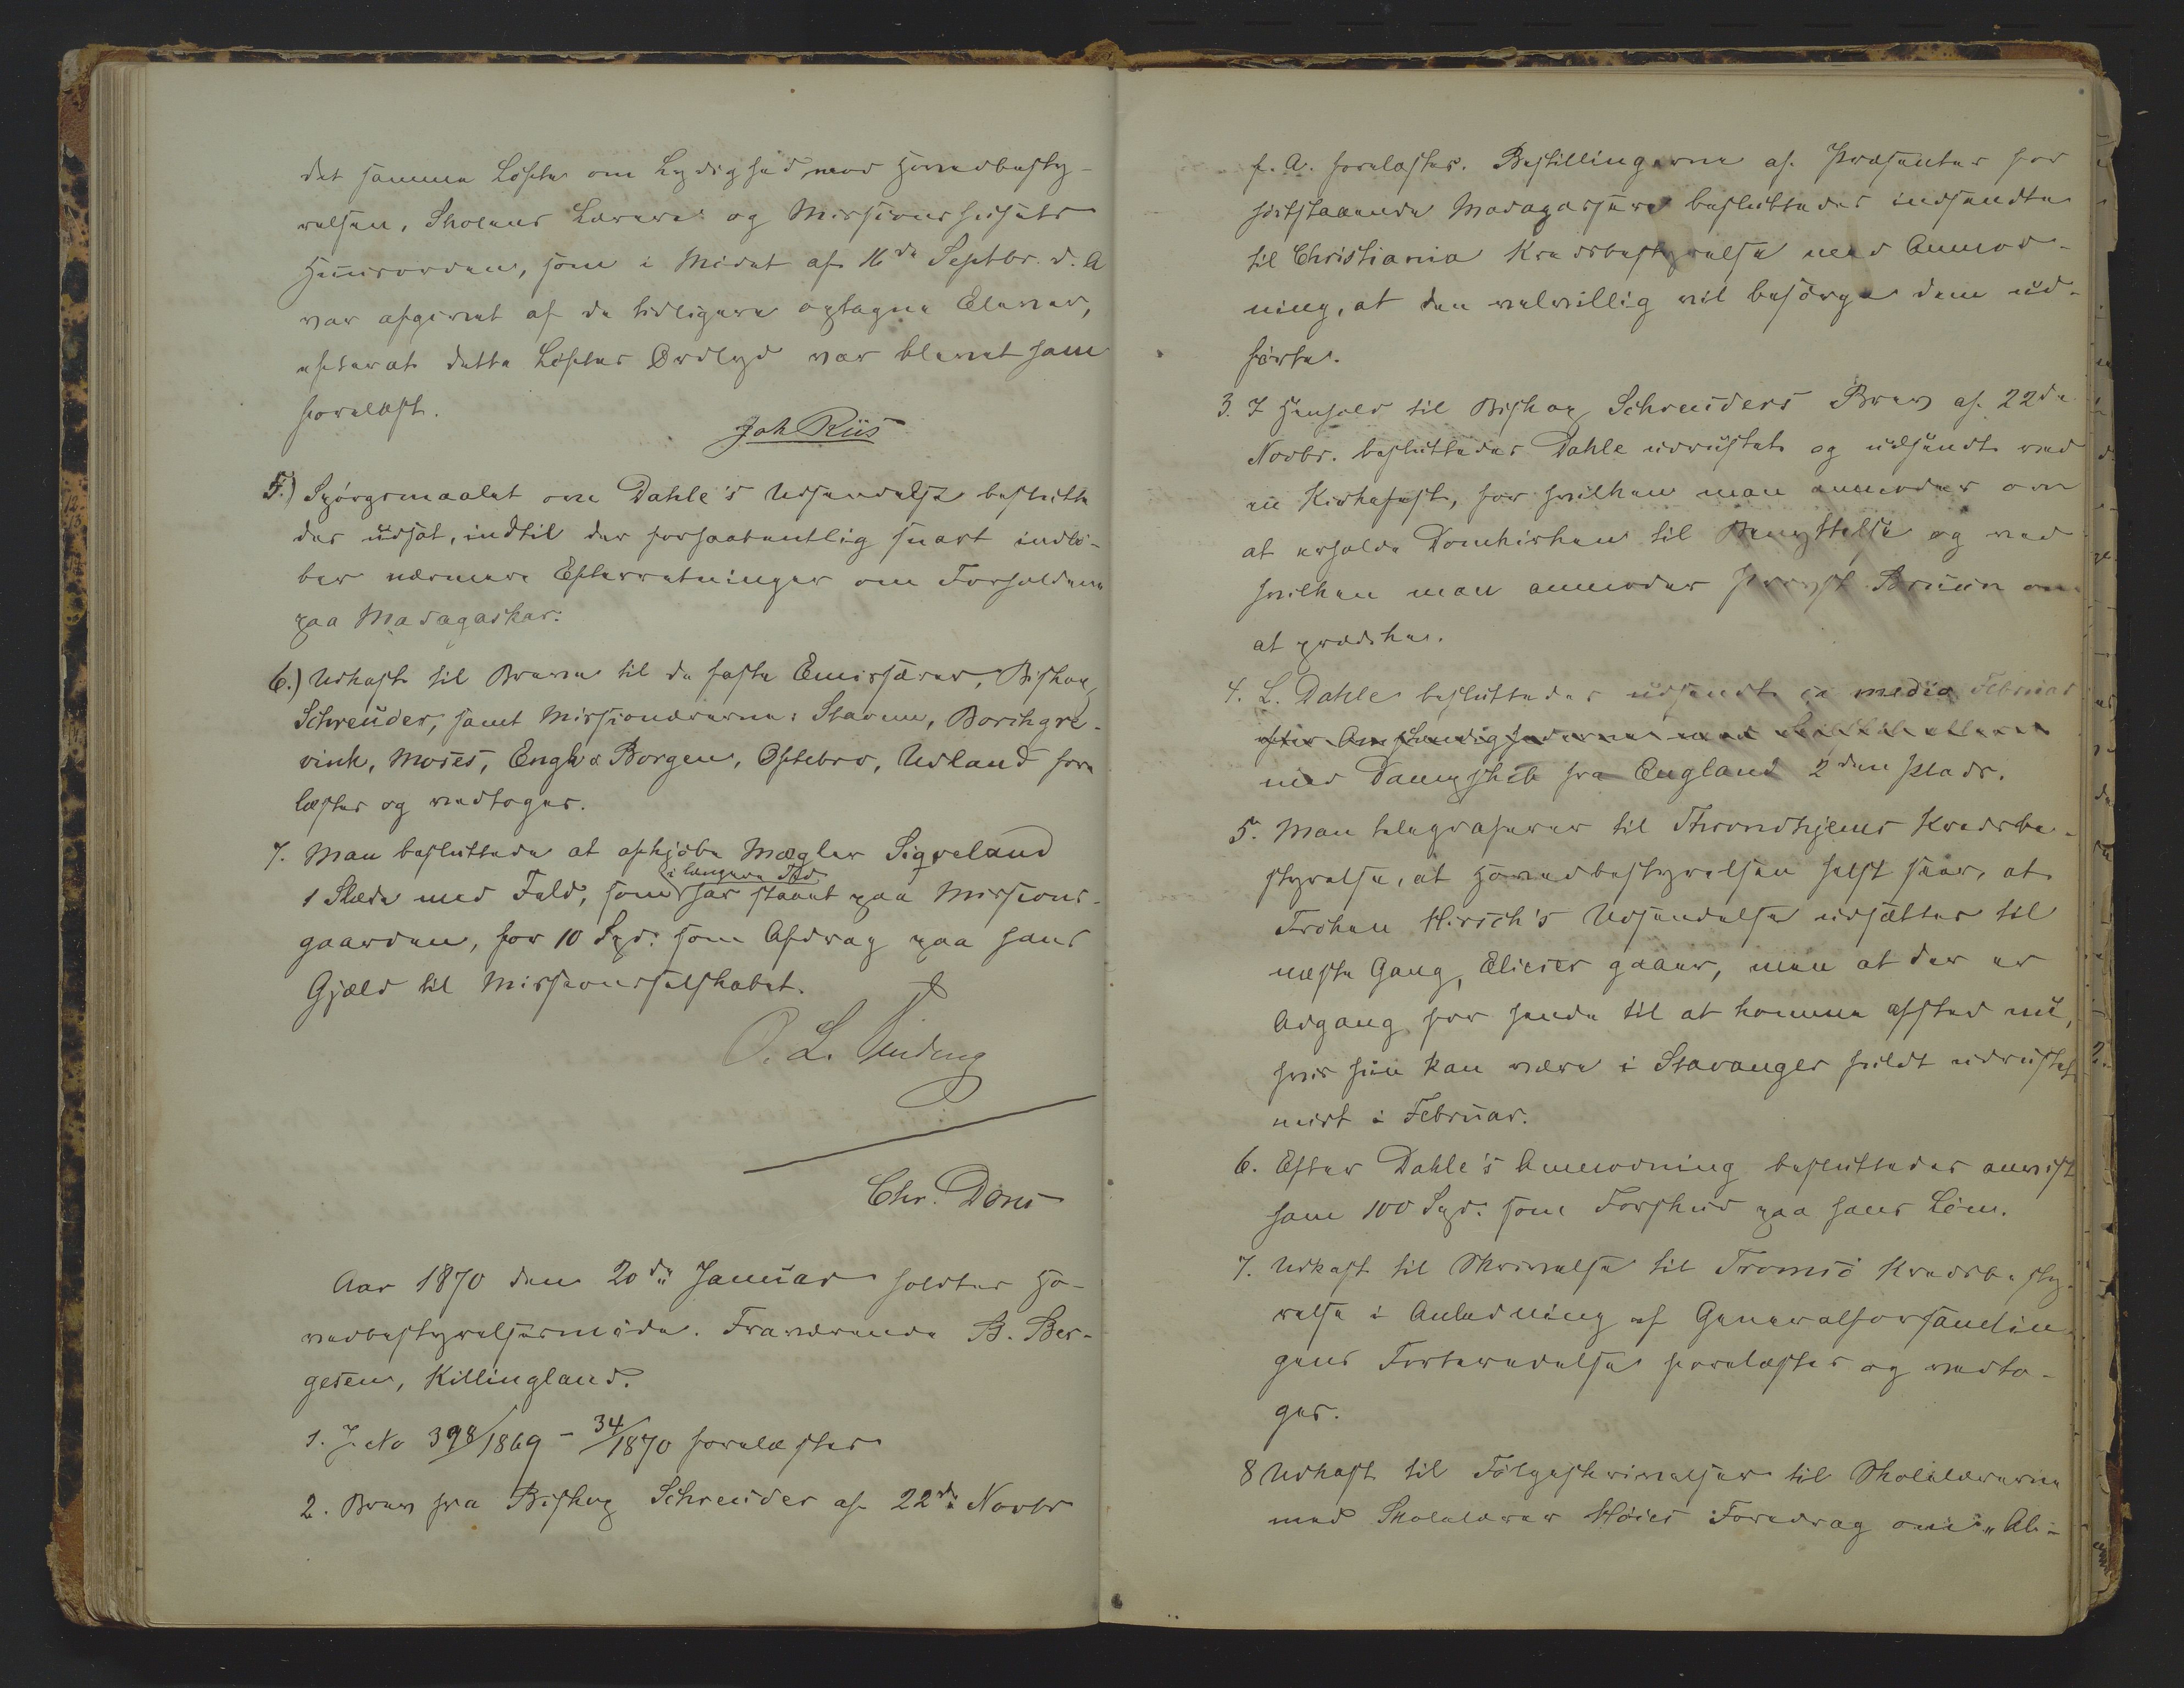 det samme Löfte om Lydighed mod Hovedbesty-
relsen, Skolens Lærere og Missionshusets
Huusorden, som i Mödet af 16de Septbr. d. A
var afgivet af de tidligere optagne Elever,
efterat dette Löftes Ordlyd var blevet ham
forelæst.
Joh Riis
5.) Spörgsmaalet om Dahle's Udsendelse beslutte
des udsat, indtil der forhaabentlig snart indlö-
ber nærmere Efterretninger om Forholdene
paa Madagaskar.
6.) Udkast til Breve til de faste Emissærer, Biskop
Schreuder, samt Missionærerne: Stavem, Borchgre-
vink, Moses, Engh & Borgen, Oftebro, Udland fore
læstes og vedtoges.
7. Man besluttede at afkjöbe Mægler Sigveland
i længere Tid
1 Slæde med Feld, som har staaet paa Missions-
gaarden, for 10 Spd: som Afdrag paa hans
Gjæld til Missionsselskabet.
O. L.
Chr. Dons
Aar 1870 den 20de Januar holdtes Ho-
vedbestyrelsesmöde. Fraværende B. Ber-
gesen, Killingland.
1. J. No 398/1869 - 34/1870 forelæstes
2. Brev fra Biskop Schreuder af 22de Novbr
f. A. forelæstes. Bestillingerne af Præsenter for
höitstaaende Madagassere besluttedes indsendte
til Christiania Kredsbestyrelse med Anmod-
ning, at den velvillig vil besörge dem ud-
förte.
3. I Henhold til Biskop Schreuders Brev af 22de
Novbr. besluttedes Dahle udrustet og udsendt ved
en Kirkefest, for hvilken man anmoder om
at erholde Domkirken til Benyttelse og ved
hvilken man anmoder Provst Bruun om
at prædike.
4. L. Dahle besluttedes udsendt ca medio Februar
efter Omstændighederne med
med Dampskib fra England 2den Plads.
5. Man telegraferer til Throndhjems Kredsbe-
styrelse, at Hovedbestyrelsen helst seer, at
Fröken Hirsch's Udsendelse udsættes til
næste Gang, Elieser gaaer, men at der er
Adgang for hende til at komme afsted nu,
hvis hun kan være i Stavanger fuldt udrustet
midt i Februar.
6. Efter Dahle's Anmodning besluttedes anvist
ham 100 Spd. som Forskud paa hans Lön.
7. Udkast til Skrivelse til Tromsö Kredsbesty-
relse i Anledning af Generalforsamlin-
gens Forberedelse forelæstes og vedto-
ges.
8 Udkast til Fölgeskrivelser til Skolelærerne
med Skolelærer Höies Foredrag om „Ali-